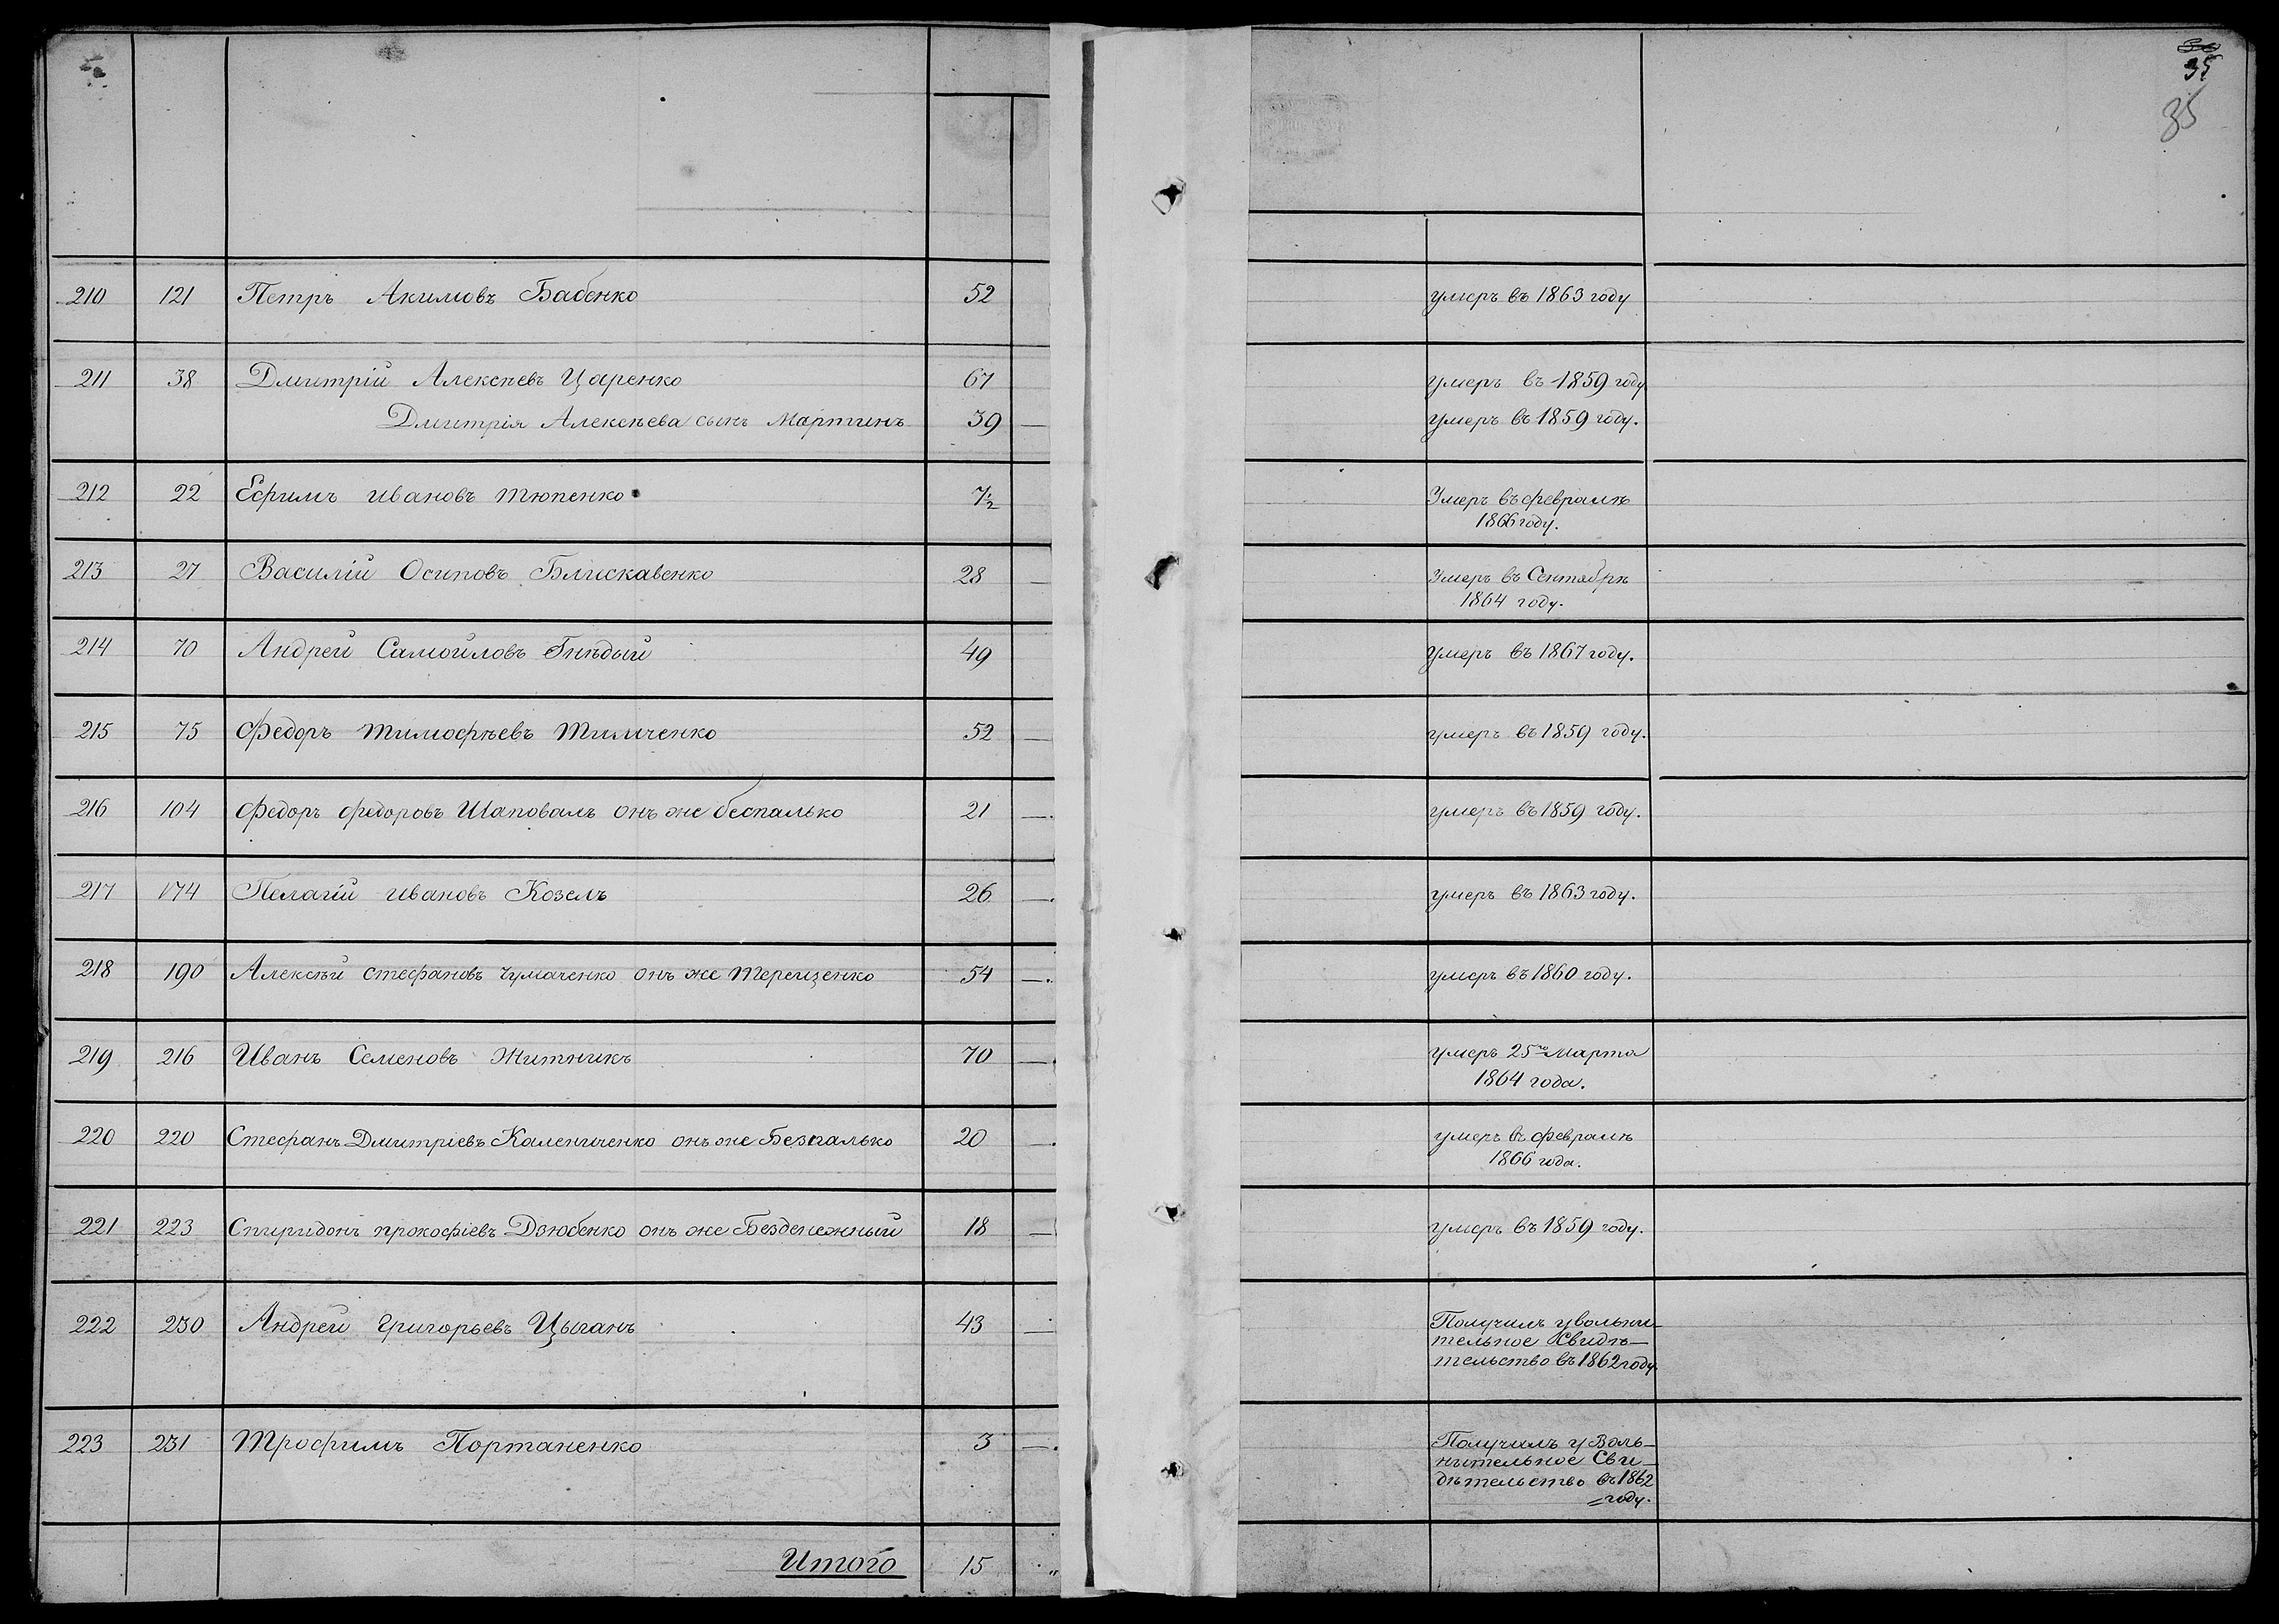 35
35
210 121 Петръ Акимовъ Бабенко 52 умеръ въ 1863 году
211 38 Дмитрій Алексѣевъ Царенко 67 умеръ въ 1859 году
Дмитрія Алексѣева сынъ Мартинъ 39 — умеръ въ 1859 году.
212 22 Ефимъ Ивановъ Тюпенко 7½ Умеръ въ февралѣ
1866 году.
213 27 Василій Осиповъ Блискавенко 28 — Умеръ въ Сентябрѣ
1864 году.
214 70 Андрей Самойловъ Гнѣдый 49 умеръ въ 1867 году.
215 75 Федоръ Тимофѣевъ Тимченко 52 — умеръ въ 1859 году.
216 104 Федоръ Федоровъ Шаповалъ онъ же беспалько 21 — умеръ въ 1859 году.
217 174 Пелагій Ивановъ Козелъ 26 — умеръ въ 1863 году.
218 190 Алексѣй Стефановъ Чумаченко онъ же Терещенко 54 — умеръ въ 1860 году.
219 216 Иванъ Семеновъ Житникъ 70 — умеръ 25го Марта
1864 года.
220 220 Стефанъ Дмитріевъ Калениченко онъ же Безпалько 20 — умеръ въ февралѣ
1866 года.
221 223 Спиридонъ Прокофіевъ Дзюбенко онъ же Безденежный 18 — умеръ въ 1859 году.
222 230 Андрей Григорьевъ Цыганъ 43 — Получилъ увольни-
тельное Свидѣ-
тельство въ 1862 году
223 231 Трофимъ Портаненко 3 — Получилъ уволь-
нительное Сви-
дѣтельство въ 1862
году.
Итого 15 "